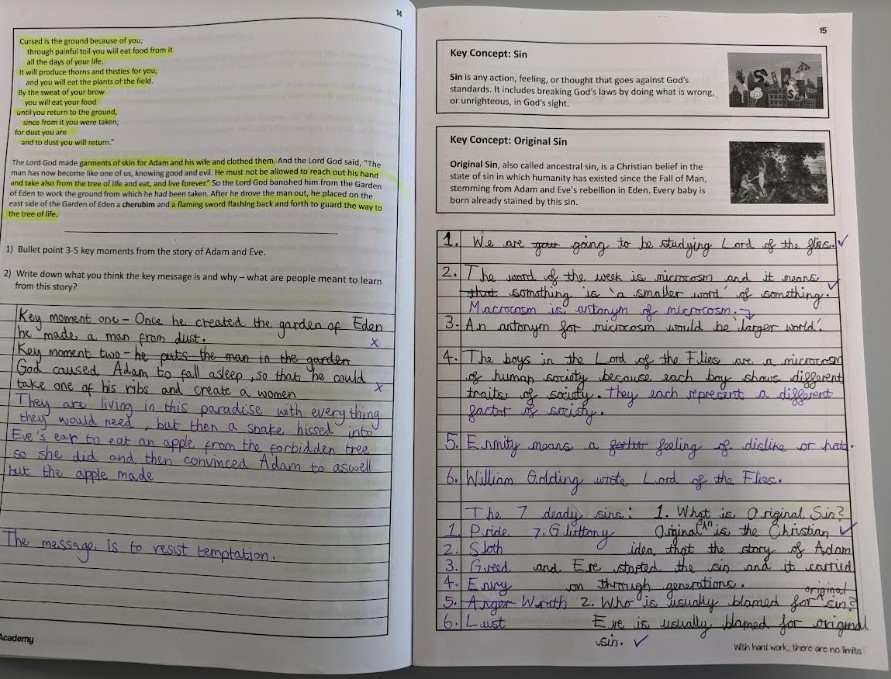 14
Cursed is the ground because of you;
through painful toil you will eat food from it
all the days of your life.
It will produce thorns and thistles for you,
and you will eat the plants of the field.
By the sweat of your brow
you will eat your food
until you return to the ground,
since from it you were taken;
for dust you are
and to dust you will return."
The Lord God made garments of skin for Adam and his wife and clothed them. And the Lord God said, "The
man has now become like one of us, knowing good and evil. He must not be allowed to reach out his hand
and take also from the tree of life and eat, and live forever." So the Lord God banished him from the Garden
of Eden to work the ground from which he had been taken. After he drove the man out, he placed on the
east side of the Garden of Eden a cherubim and a flaming sword flashing back and forth to guard the way to
the tree of life.
1) Bullet point 3-5 key moments from the story of Adam and Eve.
2) Write down what you think the key message is and why – what are people meant to learn
from this story?
Key moment one - Once he created the garden of Eden
he made a man from dust.
Key moment two - he puts the man in the garden
God caused Adam to fall asleep, so that he could
take one of his ribs and create a women
They are living in this paradise with everything
they would need, but then a snake hissed into
Eve's ear to eat an apple from the forbidden tree
so she did and then convinced Adam to aswell
but the apple made
The message is to resist temptation.
Academy
15
Key Concept: Sin
Sin is any action, feeling, or thought that goes against God's
standards. It includes breaking God's laws by doing what is wrong,
or unrighteous, in God's sight.
Key Concept: Original Sin
Original Sin, also called ancestral sin, is a Christian belief in the
state of sin in which humanity has existed since the Fall of Man,
stemming from Adam and Eve's rebellion in Eden. Every baby is
born already stained by this sin.
1. We are your going to be studying Lord of the flies.
2. The word of the week is microcosm and it means
that something is 'a smaller word' of something.
Macrocosm is antonym of microcosm.
3. An antonym for microcosm would be 'larger world'.
4. The boys in the Lord of the Flies are a microcosm
of human society because each boy shows different
traits of society. They each represent a different
factor of society.
5. Enmity means a feeling of dislike or hate.
6. William Golding wrote Lord of the Flies.
The 7 deady sins: 1. What is Original Sin?
1. Pride 7. Gluttony Original sin is the Christian
2. Sloth idea, that the story of Adam
3. Greed and Eve started the sin and it carried
4. Envy on through generations.
5. Anger Wrath 2. Who is usually blamed for original sin?
6. Lust Eve is usually blamed for original
sin.
With hard work, there are no limits